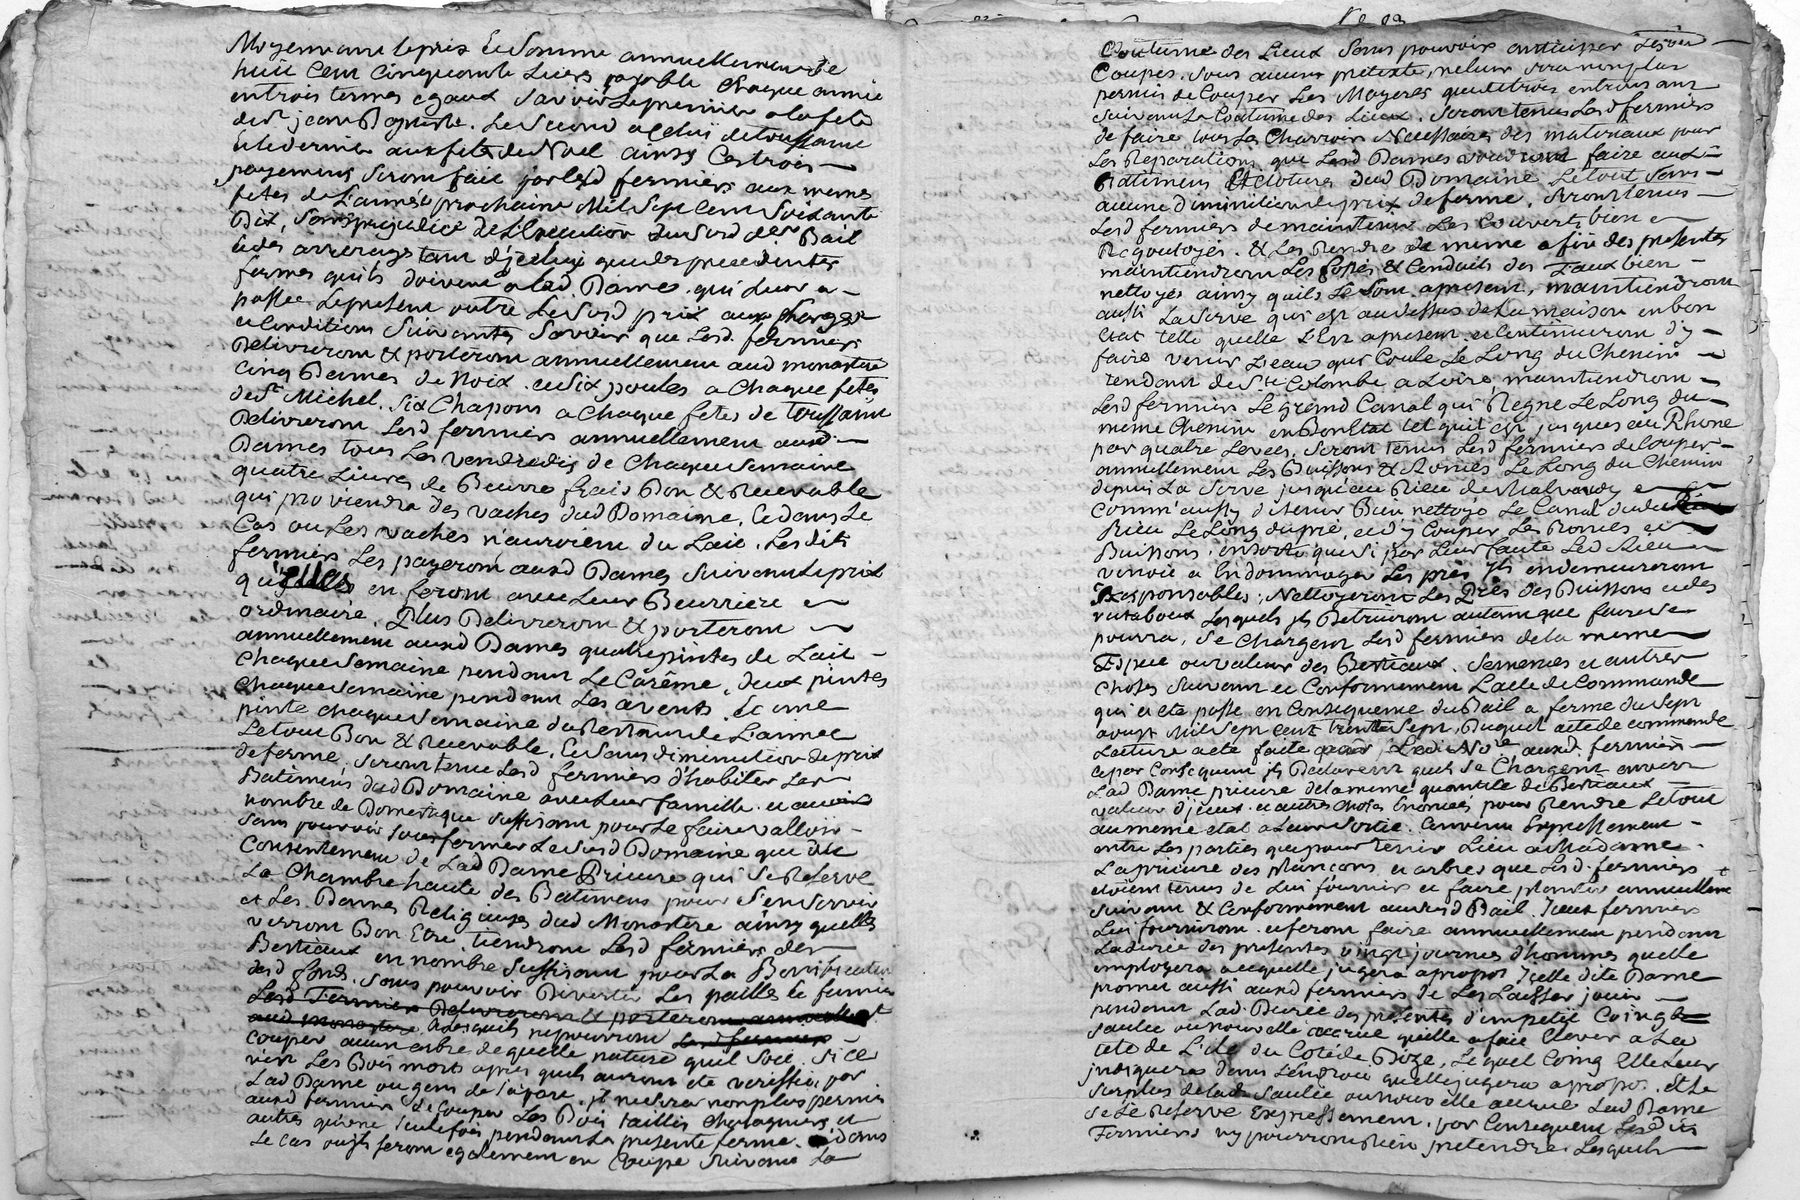 Moyennant le prix et Somme annuellement de
huit Cent Cinquante Livres payable Chaque année
en trois termes egaux Savoir Le premier a la fete
de St jean Baptiste. Le Second a Celui de Toussaint
Et le dernier aux fetes de Noel ainsy Ces trois
payemens Seront fait par lesd fermiers aux memes
fetes de L'année prochaine Mil Sept Cent Soixante
Dix, Sans prejudice de L'Execution du Susd der Bail
et des arrerages tant d'jcelluy que des precedentes
fermes quils doivent a lad. Dame. qui Leur a
passée Le present outre Le Susd prix aux Charges
et Conditions Suivantes Savoir que Lesd. fermiers
Delivreront & porteront annuellement aud monastere
Cinq Bennes de Noix. et Six poules a Chaque fetes
de St Michel. Six Chapons a Chaque fetes de Toussaint
Delivreront Lesd fermiers annuellement ausd.
Dames tous Les vendredis de Chaque Semaine
quatre Livres de Beurre frais Bon & Recevable
qui proviendra des vaches dud Domaine, Et dans Le
Cas ou Les vaches n'auroient du Lait. Lesdits
fermiers Les payeront ausd Dames Suivant Le prix
qu'Elles en feront avec Leur Beurriere
ordinaire. Plus Delivreront & porteront
annuellement ausd Dames quatre pintes de Lait
Chaque Semaine pendant Le Carême, deux pintes
Chaque Semaine pendant Les avents, Et une
pinte Chaque Semaine du Restant de L'année
Le tout Bon & Recevable, Et Sans diminution de prix
de ferme, Seront tenus Lesd fermiers d'habiter Les
Batimens dud Domaine avec Leur famille. et avoir
nombre de Domestique Suffisant pour Le faire valloir
Sans pouvoir Sousfermer Le Susd Domaine que du
Consentement de Lad Dame Prieure qui Se Reserve
La Chambre haute des Batimens pour S'en Servir
et Les Dames Religieuses dud Monastere ainsy quelles
verront Bon Etre. tiendront Lesd fermiers des
Bestiaux en nombre Suffisant pour La Bonification
desd fonds. Sans pouvoir Divertir Les pailles et fumier
Lesd Fermiers Delivreront & porteront annuellement
aud monastere desquils ne pourront Lesd fermiers
Couper aucun arbre de quelle nature quil Soit. Si Ce
n'est Les Bois morts apres quils auront eté veriffiés par
Lad Dame ou gens de Sa part. jl ne Sera non plus permis
ausd fermiers de Couper Les Bois taillis Chataigniers et
autres qu'une Seule fois pendant La presente ferme. Et dans
Le Cas ou jls feront egalement en Coupe Suivant La
Coutume des Lieux Sans pouvoir anticiper Lesd
Coupes. Sous aucun pretexte, ne leur Sera non plus
permis de Couper Les Mayeres que de trois en trois ans
Suivant La Coutume des Lieux. Seront tenus Lesd fermiers
de faire tous Les Charrois Necessaires des materiaux pour
Les Reparations que Lesd Dames voudront faire aux
Batimens & Clotures dud Domaine. Le tout Sans
aucune diminution de prix de ferme. Seront tenus
Lesd fermiers de maintenir Les Couverts bien
Regoutoyés. & Les Rendre de meme a fin des presentes
maintiendront Les fossés & Conduits des Eaux bien
nettoyés ainsy quils Le Sont apresent, maintiendront
aussi La Serve qui est audessus de La maison en bon
Etat telle quelle L'Est apresent. et Continueront d'y
faire venir L'eau qui Coule Le Long du Chemin
tendant de Ste Colombe a Loire, maintiendront
Lesd fermiers Le grand Canal qui Regne Le Long du
meme Chemin en Bon Etat tel quil est jusques au Rhone
par quatre Levées, Seront tenus Lesd fermiers de Couper
annuellement Les Buissons & Ronces Le Long du Chemin
depuis La Serve jusqu'au Rieu de Malvardy
Comm'aussy de tenir Bien nettoyé Le Canal dudit
Rieu Le Long du pré, et d'y Couper Les Ronces et
Buissons; en Sorte que Si par Leur faute Led Rieu
venoit a Endommager Les prés jls en demeureront
Responsables; Nettoyeront Les Prés des Buissons et des
ravaboux Lesquels jls Detruiront autant que faire Se
pourra, Se Chargent Lesd fermiers de la meme
Espece ou valeur des Bestiaux. Semences et autres
Choses Suivant et Conformement L'acte de Commande
qui a eté passé en Consequence du Bail a ferme du Sept
aoust Mil Sept Cent trente Sept, Duquel acte de commande
Lecture a eté faite par Led. Nore ausd. fermiers
et par Consequent jls Declarent quils Se Chargent envers
Lad Dame prieure de la meme quantité de Bestiaux
valeur d'jceux. et autres Choses Enoncées pour Rendre Le tout
au meme etat a Leur Sortie. Convenu Expressement
entre Les parties que pour tenir Lieu a Madame.
La prieure des plançons et arbres que Lesd. fermiers
etoient tenus de Lui fournir et faire planter annuellement
Suivant & Conformement au Susd Bail. Jceux fermiers
Lui fourniront et feront faire annuellement pendant
La durée des presentes vingt journées d'hommes quelle
employera a ce quelle jugera apropos Jcelle dite Dame
promet aussi ausd fermiers de Les Laisser jouir
pendant Lad Durée des presentes d'un petit Coing de
Saulée ou nouvelle accrue quelle a fait Elever a La
tete de L'ile du Coté de Boze, Lequel Coing Elle Leur
marquera dans L'endroit quelle jugera apropos. et Le
Surplus de lade Saulée ou nouvelle accrue Lad Dame
Se Le Reserve Expressement. par Consequent Lesdits
Fermiers n'y pourront Rien pretendre. Lesquels